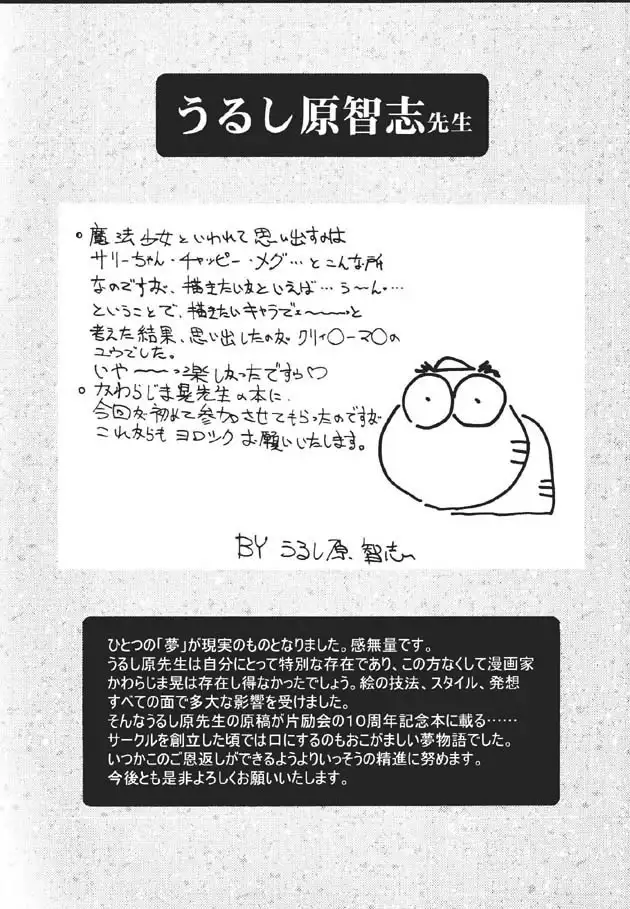 うるし原智志先生
○魔法少女といわれて思い出すのは
サリーちゃん・チャッピー・メグ…とこんな所
なのですが、描きたい女といえば…う〜ん・…
ということで、描きたいキャラでェ〜〜〜っと
考えた結果、思い出したのが クリィ○ーマ○の
ユウでした。
いや〜〜〜っ楽しかったですゥ♡
○かわらじま晃先生の本に、
今回が初めて参加させてもらったのですが
これからも ヨロシク お願いいたします。
BY うるし原 智志
ひとつの「夢」が現実のものとなりました。感無量です。
うるし原先生は自分にとって特別な存在であり、この方なくして漫画家
かわらじま晃は存在し得なかったでしょう。絵の技法、スタイル、発想
すべての面で多大な影響を受けました。
そんなうるし原先生の原稿が片励会の10周年記念本に載る……
サークルを創立した頃では口にするのもおこがましい夢物語でした。
いつかこのご恩返しができるようよりいっそうの精進に努めます。
今後とも是非よろしくお願いいたします。